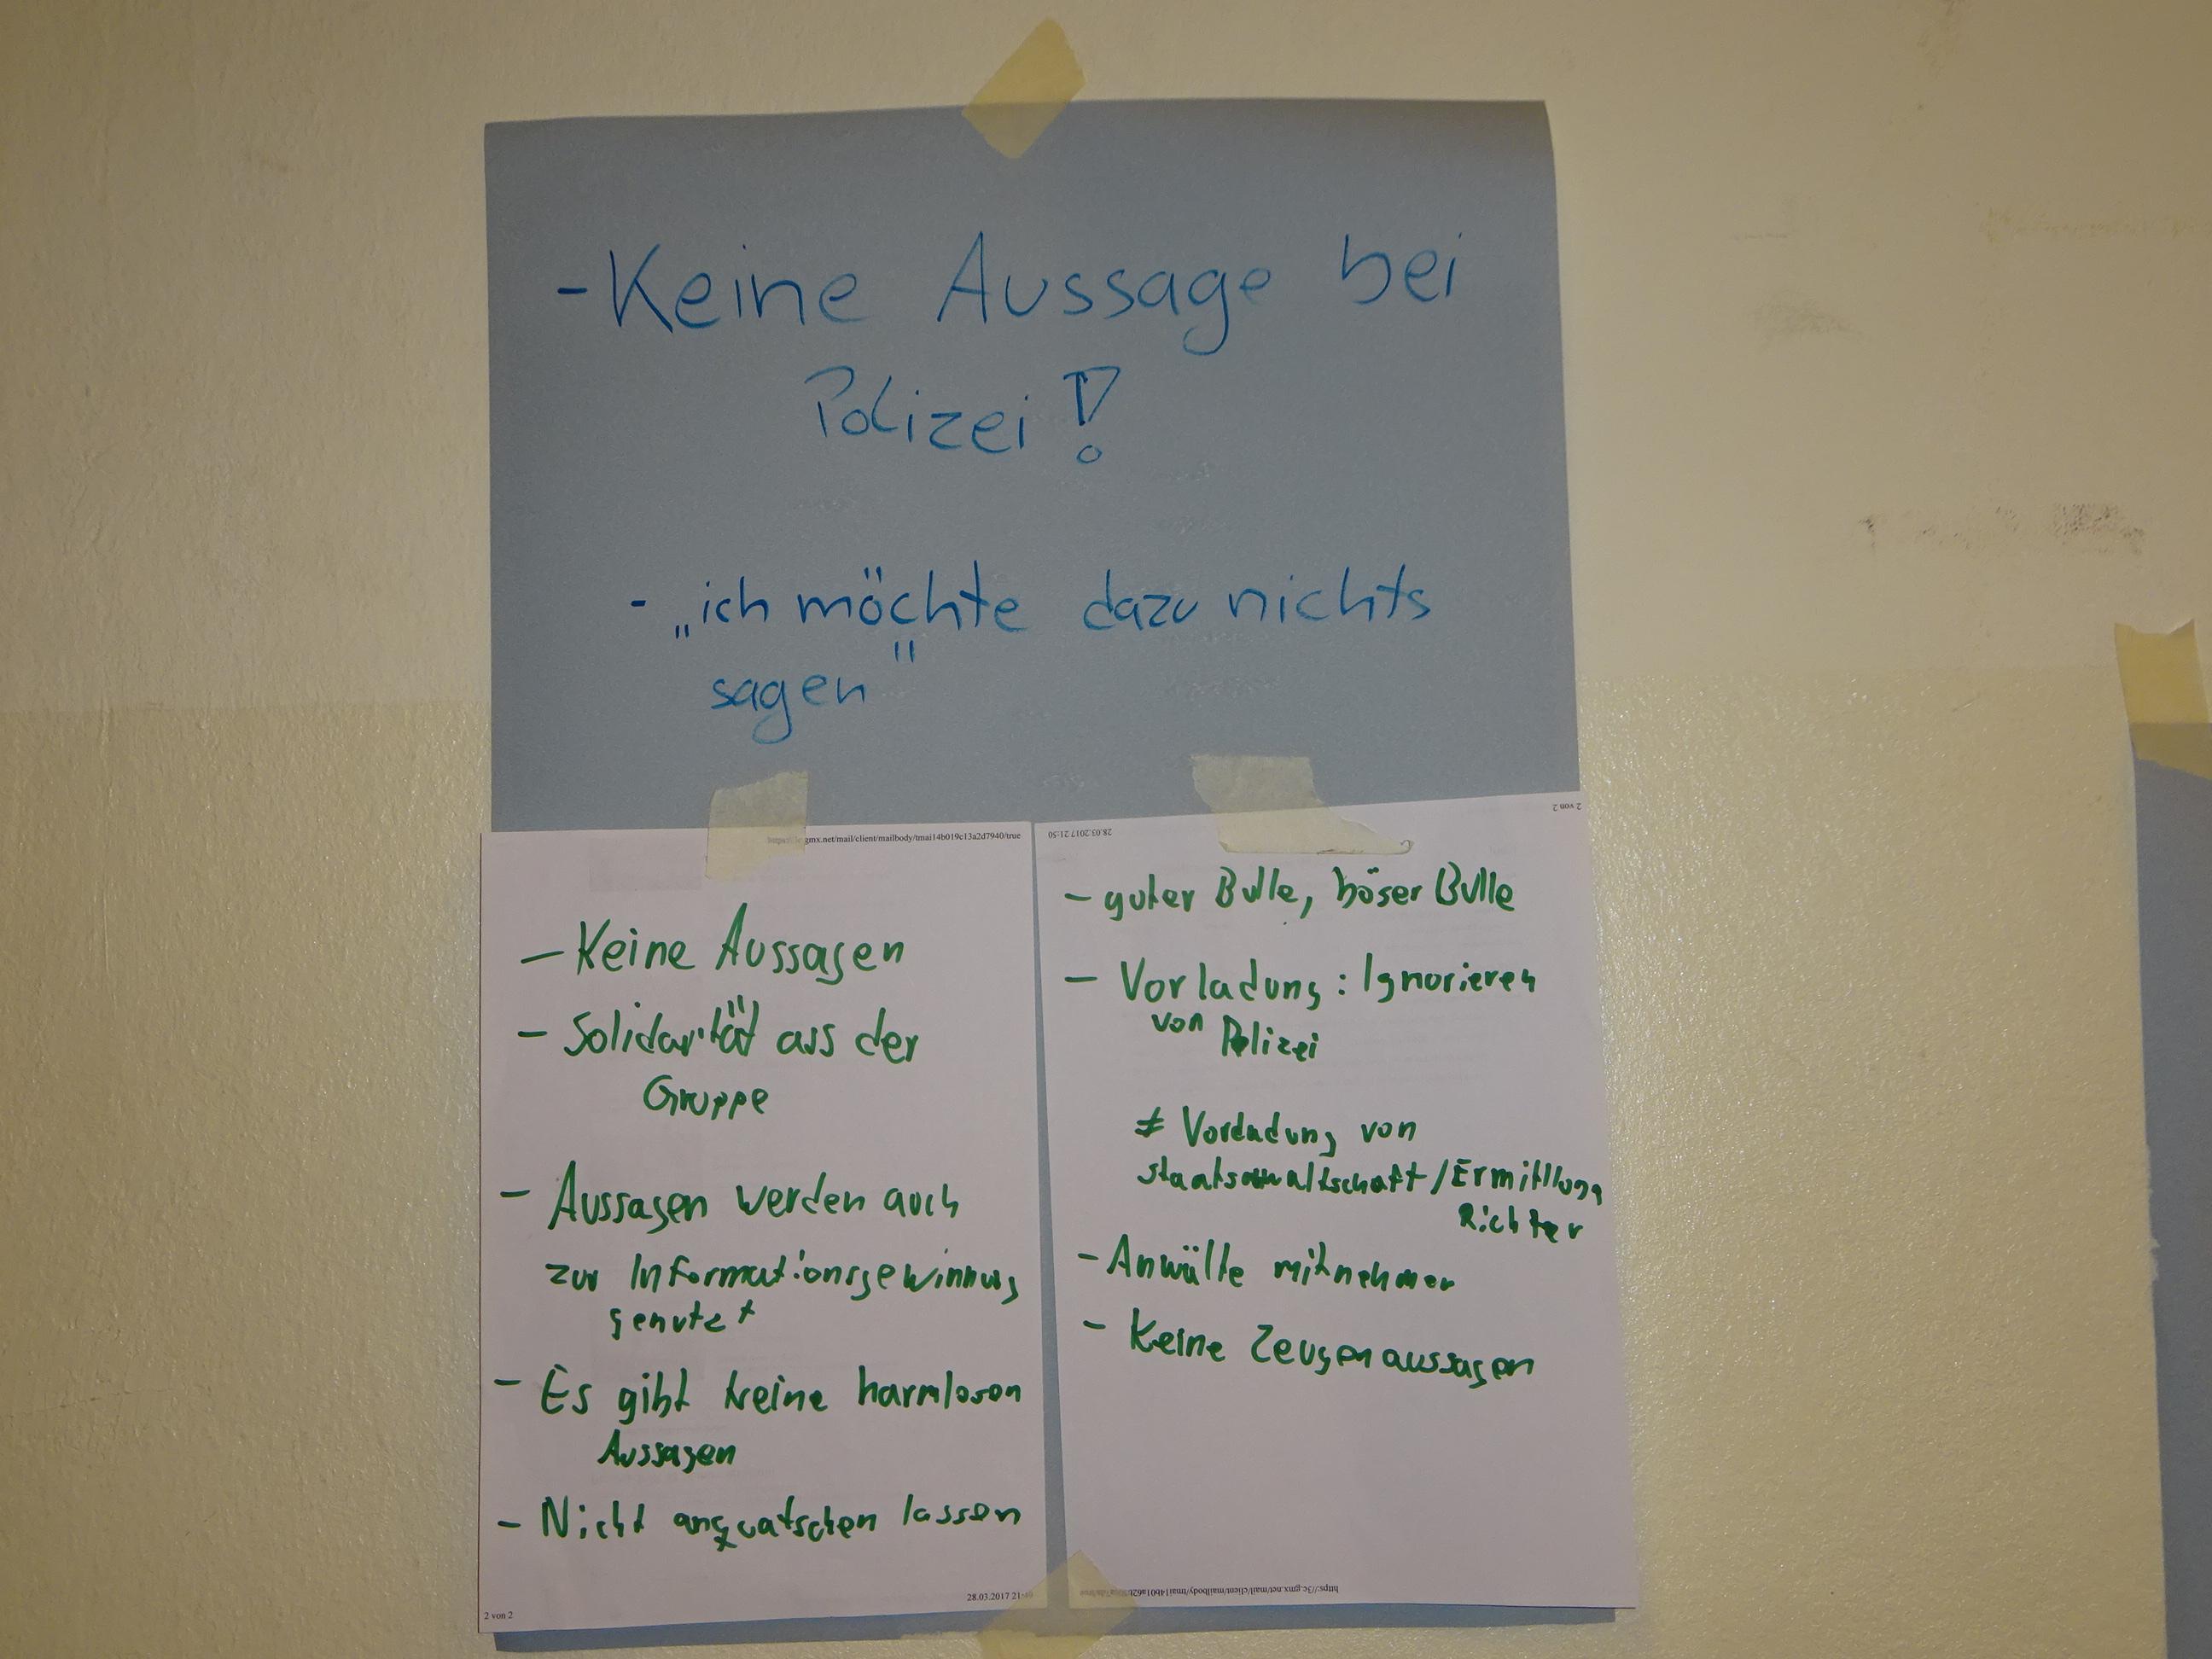 - Keine Aussage bei
Polizei!
- „ich möchte dazu nichts
sagen"
gmx.net/mail/client/mailbody/tmai14b019c13a2d7940/true
- Keine Aussagen
- Solidarität aus der
Gruppe
- Aussagen werden auch
zur Informationsgewinnung
genutzt
- Es gibt keine harmlosen
Aussagen
- Nicht anquatschen lassen
28.03.2017 21:
2 von 2
2 von 2
28.03.2017 21:50
- guter Bulle, böser Bulle
- Vorladung: Ignorieren
von Polizei
≠ Vorladung von
Staatsanwaltschaft/Ermittlung
Richter
- Anwälte mitnehmen
- Keine Zeugenaussagen
https://3c.gmx.net/mail/client/mailbody/